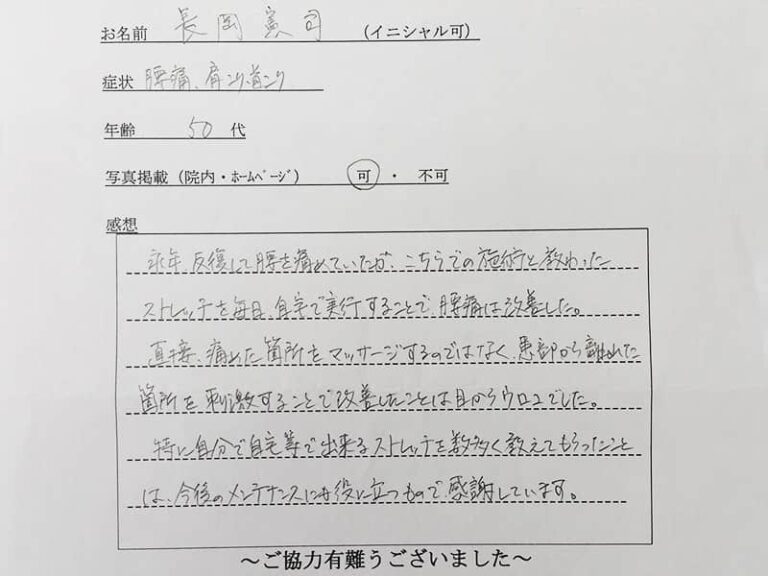 お名前 長岡憲司 (イニシャル可)
症状 腰痛、肩コリ、首コリ
年齢 50 代
写真掲載 (院内・ホームページ) 可 ・ 不可
感想
永年、反復して腰を痛めていたが、こちらでの施術と教わった
ストレッチを毎日、自宅で実行することで、腰痛は改善した。
直接、痛めた箇所をマッサージするのではなく、患部から離れた
箇所を刺激することで改善したことは目からウロコでした。
特に自分で自宅等で出来るストレッチを数多く教えてもらったこと
は、今後のメンテナンスにも役に立つもので、感謝しています。
~ご協力有難うございました~